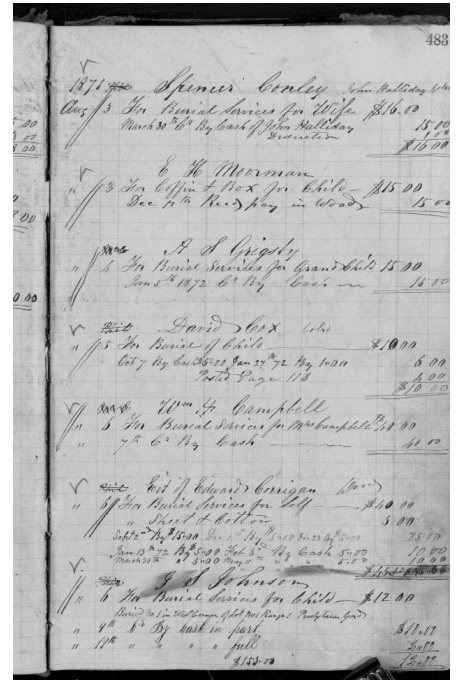 483
1871 Spencer Conley John Halliday
Aug 3 For Burial Services for Wife $16.00
March 30th Cr By Cash of John Halliday 15.00
Deduction 1.00
$16 00
E H Moorman
" 3 For Coffin & Box for Child — $15 00
Dec Recd pay in Wood 15 00
A S Grigsby
" 4 For Burial Services for Grand Child 15 00
Jan 5th 1872 Cr By Cash — 15 00
David Cox Cold
" 5 For Burial of Child — $10 00
Oct 7 By Cash Jan 27th 72 By 6 00
Posted Page 113 4 00
$10 00
Wm Campbell
" 6 For Burial Services for Mrs Campbell 40 00
" 7th Cr By Cash — 40 00
Est of Edward Corrigan Decd
" 6 For Burial Services for Self — $40 00
" Sheet & Cotton 5 00
Sept 2nd By $15.00 Dec 1st By 5.00 By 5.00 25 00
Jan 13th 72 By 5.00 Feb By Cash 5.00 10 00
March 30th " 5.00 May " " 5.00 10 00
J S Johnson
" 6 For Burial Services for Child — $12 00
Buried No 1 in West Corner of lot Range Presbyterian Yard
" 9th Cr By Cash in part $10.00
" 19th " " " " full 2.00
$153.00 12.00
5 00
8 00
0 00